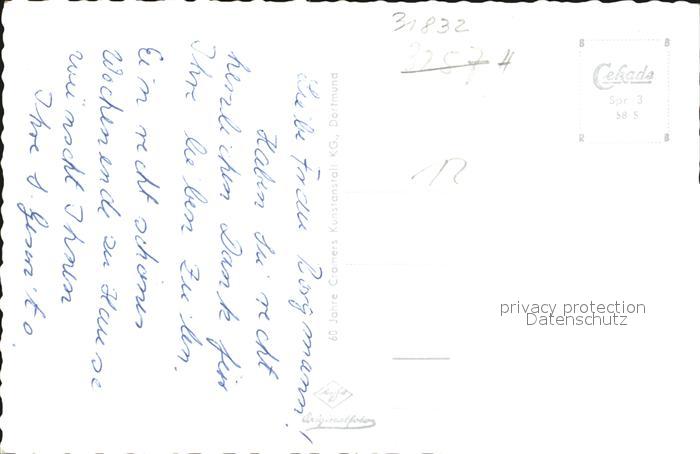 Liebe Frau Borgmann!
Haben Sie recht
herzlichen Dank für
Ihre lieben Zeilen.
Ein recht schönes
Wochenende zu Hause
wünscht Ihnen
Ihre S.
60 Jahre Cramers Kunstanstalt KG., Dortmund
31832
3257 H
12
Cekade
Spr 3
58 S
privacy protection
Datenschutz
Agfa
Originalfoto